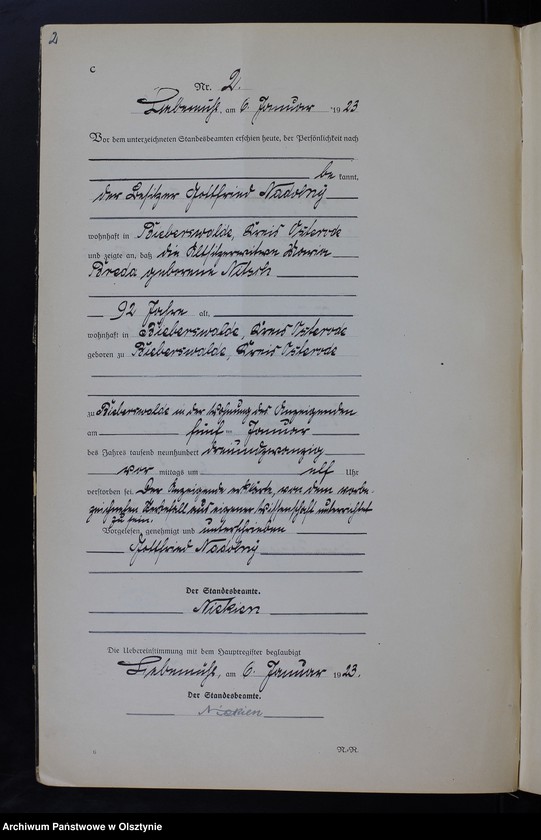 2
C
Nr. 2.
Liebemühl, am 6. Januar 1923
Vor dem unterzeichneten Standesbeamten erschien heute, der Persönlichkeit nach
be kannt,
der Besitzer Gottfried Nadolny
wohnhaft in Bieberswalde, Kreis Osterode
und zeigte an, daß die Altsitzerwitwe
Breda geborene
92 Jahre alt,
wohnhaft in Bieberswalde, Kreis Osterode
geboren zu Bieberswalde, Kreis Osterode
zu Bieberswalde in der Wohnung des Anzeigenden
am fünf ten Januar
des Jahres tausend neunhundert dreiundzwanzig
vor mittags um elf Uhr
verstorben sei. Der Anzeigende erklärte, von dem vorbe-
zeichneten Sterbefall aus eigener Wissenschaft unterrichtet
zu sein.
Vorgelesen, genehmigt und unterschrieben
Gottfried Nadolny
Der Standesbeamte.
Nickien
Die Uebereinstimmung mit dem Hauptregister beglaubigt
Liebemühl, am 6. Januar 1923.
Der Standesbeamte.
Nickien
N/R.
Archiwum Państwowe w Olsztynie